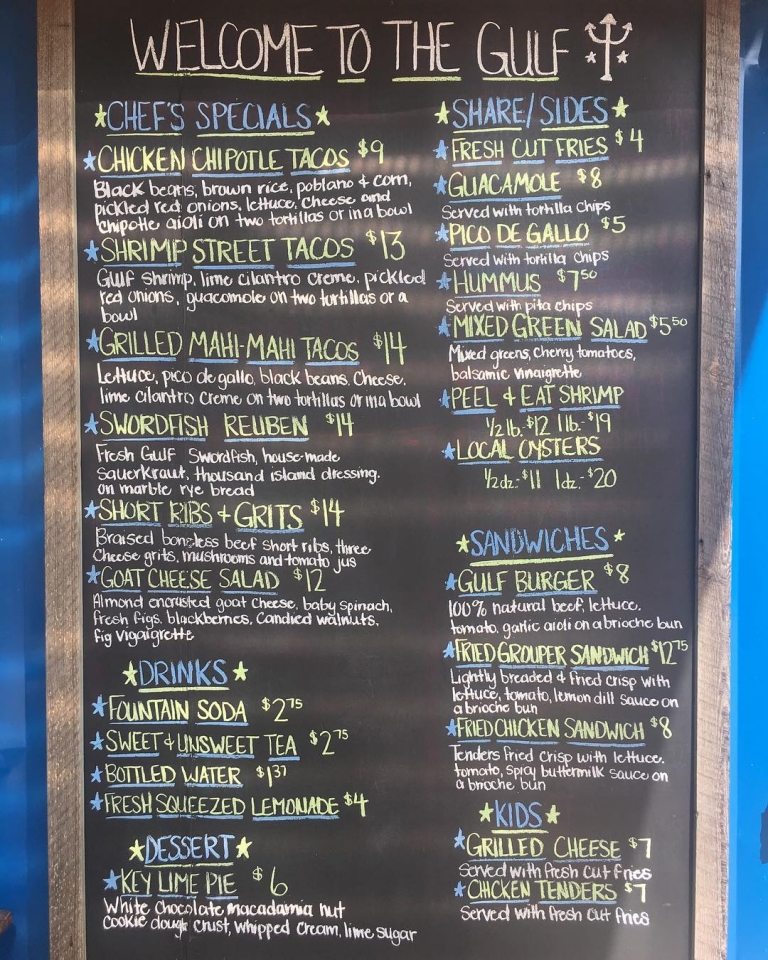 WELCOME TO THE GULF
CHEF'S SPECIALS
CHICKEN CHIPOTLE TACOS $9
Black beans, brown rice, poblano & corn,
pickled red onions, lettuce, cheese and
chipotle aioli on two tortillas or in a bowl
SHRIMP STREET TACOS $13
Gulf shrimp, lime cilantro creme, pickled
red onions, guacamole on two tortillas or a
bowl
GRILLED MAHI-MAHI TACOS $14
Lettuce, pico de gallo, black beans, cheese,
lime cilantro creme on two tortillas or in a bowl
SWORDFISH REUBEN $14
Fresh Gulf Swordfish, house-made
Sauerkraut, thousand island dressing.
on marble rye bread
SHORT RIBS + GRITS $14
Braised boneless beef short ribs, three
Cheese grits, mushrooms and tomato jus
GOAT CHEESE SALAD $12
Almond encrusted goat cheese, baby spinach,
fresh figs, blackberries, candied walnuts,
fig vigaigrette
DRINKS
FOUNTAIN SODA $2.75
SWEET & UNSWEET TEA $2.75
BOTTLED WATER $1.37
FRESH SQUEEZED LEMONADE $4
DESSERT
KEY LIME PIE $6
White Chocolate macadamia nut
cookie dough crust, whipped cream, lime sugar
SHARE/SIDES
FRESH CUT FRIES $4
GUACAMOLE $8
Served with tortilla chips
PICO DE GALLO $5
Served with tortilla chips
HUMMUS $7.50
Served with pita chips
MIXED GREEN SALAD $5.50
Mixed greens, cherry tomatoes,
balsamic vinaigrette
PEEL & EAT SHRIMP
1/2 lb. $12 1 lb.- $19
LOCAL OYSTERS
1/2 dz.- $11 1dz.- $20
SANDWICHES
GULF BURGER $8
100% natural beef, lettuce.
tomato, garlic aioli on a brioche bun
FRIED GROUPER SANDWICH $12.75
Lightly breaded & fried crisp with
lettuce, tomato, lemon dill sauce on
a brioche bun
FRIED CHICKEN SANDWICH $8
Tenders fried crisp with lettuce.
tomato, spicy buttermilk sauce on
a brioche bun
KIDS
GRILLED CHEESE $7
Served with fresh cut fries
CHICKEN TENDERS $7
Served with fresh cut fries